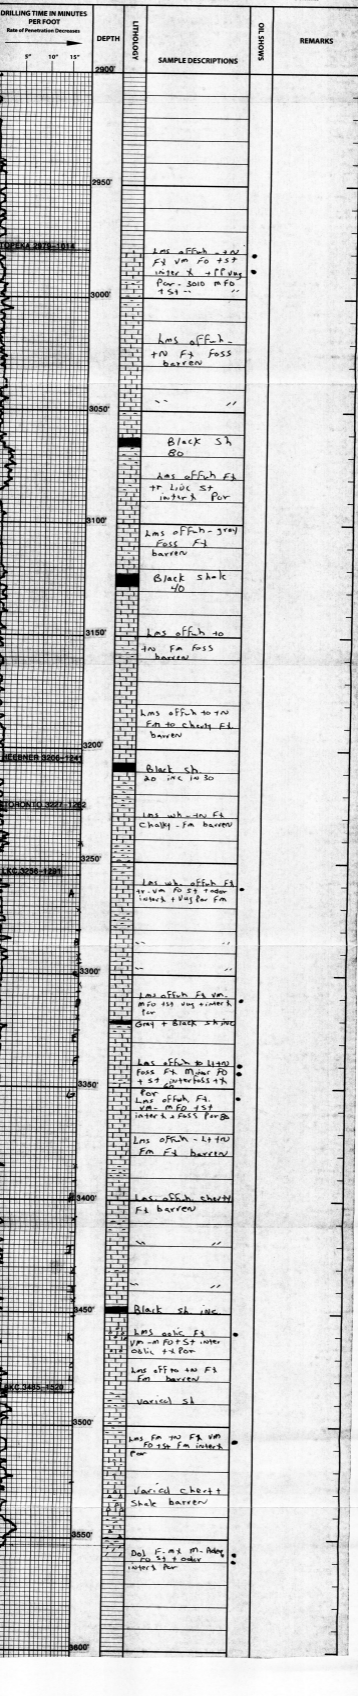 DRILLING TIME IN MINUTES
PER FOOT
Rate of Penetration Decreases
5" 10" 15"
DEPTH
LITHOLOGY
SAMPLE DESCRIPTIONS
OIL SHOWS
REMARKS
2900'
2950'
TOPEKA 2979-1014
Lms offwh - tN
FX vm FO + ST
inter X + PP vug
Por - 3010 mFO
+ St - "
3000'
Lms offwh -
tN FX Foss
barren
" "
3050'
Black Sh
80
Lms offwh FX
tr Live St
inter X Por
3100'
Lms offwh - gray
Foss FX
barren
Black Shale
40
3150'
Lms offwh to
tN Fm Foss
barren
Lms offwh to tN
Fm to cherty FX
barren
3200'
HEEBNER 3206-1241
Black Sh
20 inc in 30
TORONTO 3227-1262
Lms wh - tN FX
Chalky - Fm barren
3250'
LKC 3256-1291
A
Lms wh offwh FX
tr - vm FO St + odor
inter X + Vug Por Fm
B
" "
" "
3300'
Lms offwh FX vm
mFO + St vug + inter X
Por
Gray + Black Sh inc
E
F
Lms offwh to Lt tN
Foss FX FO
+ St interfoss + X
Por
3350'
G
Lms offwh FX
vm - mFO + St
inter X + Foss Por
Lms offwh - Lt tN
Fm FX barren
H
3400'
Lms offwh cherty
FX barren
I
" "
J
" "
3450'
Black Sh inc
K
Lms oolic FX
vm - mFO + St inter
oolic + X Por
Lms off to tN FX
Fm barren
BKC 3485-1520
Varicol Sh
3500'
Lms Fm tN FX vm
FO + St Fm inter X
Por
Varicol Chert +
Shale barren
3550'
Dol F-mX M-
FO St + odor
inter X Por
3600'